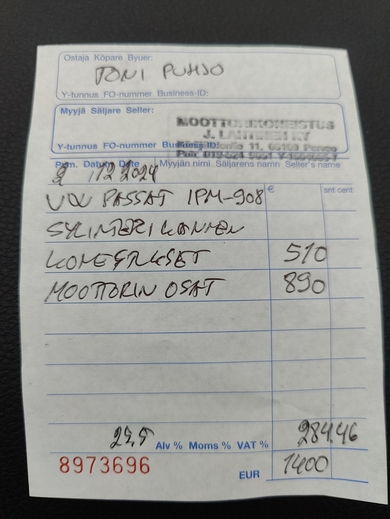 Ostaja Köpare Byuer:
TONI PUHJO
Y-tunnus FO-nummer Business-ID:
Myyjä Säljare Seller:
MOOTTORIKONEISTUS
J. LAHTINEN KY
Y-tunnus FO-nummer Business-ID:
11, 06150 Porvoo
Pvm. Datum Date Myyjän nimi Säljarens namn Seller's name
2 .12 2024
€ snt cent
VW PASSAT IPM-908
SYLINTERIKANNEN
KONEISTUKSET 510
MOOTTORIN OSAT 890
25,5 Alv % Moms % VAT % 284.46
8973696 EUR 1400